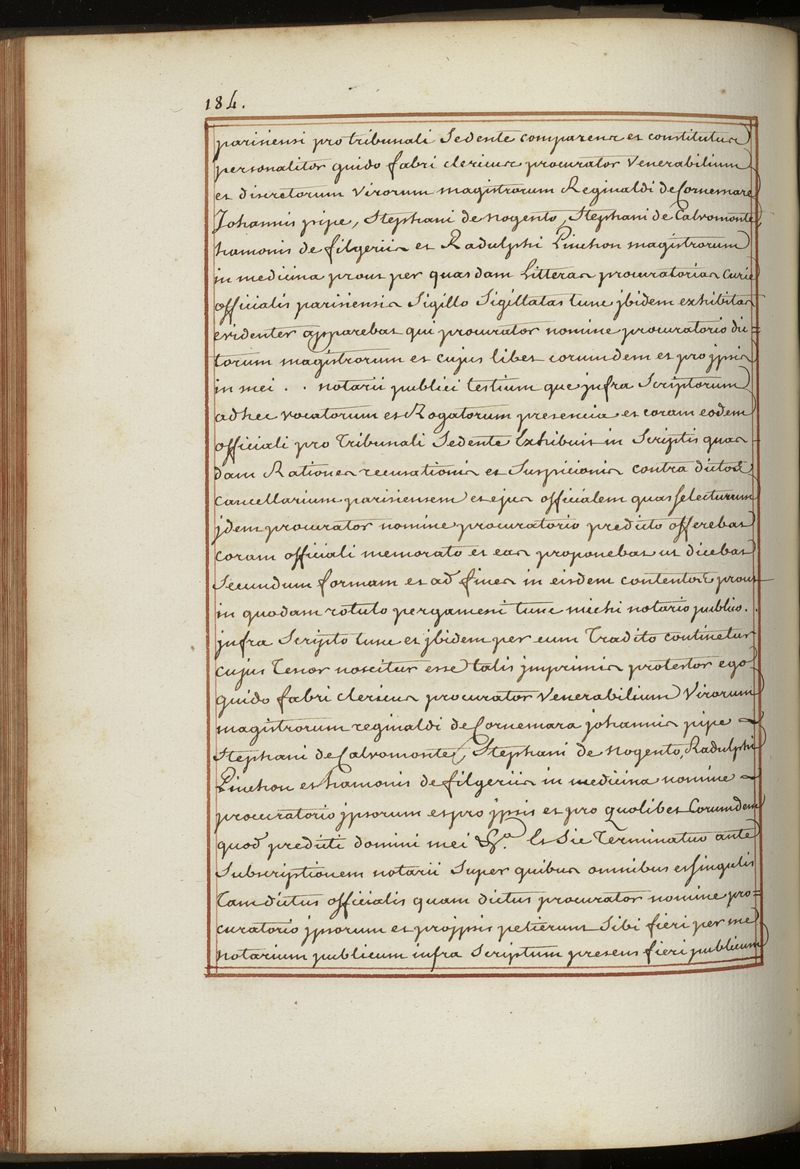 184.
parisiensi pro tribunali Sedente comparens et constitutus
personaliter guido fabri clericus procurator Venerabilium
et discretorum virorum magistrorum Reginaldi de Cornemare
Johannis pipe, Stephani de Nogento, Stephani de Calvomonte,
hamonis de filgeriis et Radulphi Pinchon magistrorum
in medicina prout per quasdam Litteras procuratorias Curie
officialis parisiensis Sigillo Sigillatas tunc jbidem exhibitas
evidenter apparebat qui procurator nomine procuratorio dic=
torum magistrorum et cujus libet eorumdem et pro jpsis
in mei . . notarii publici testium que jnfra Scriptorum
ad hec vocatorum et Rogatorum presencia et coram eodem
officiali pro Tribunali Sedente Exhibuit in Scriptis quas
dam Rationes recusationis et Suspicionis contra dictos
Cancellarium parisiensem et ejus officialem quas se lecturum
jdem procurator nomine procuratorio predicto offerebat
coram officiali memorato et eas proponebat ut dicebat
Secundum formam et ad fines in eisdem contentos prout
in quodam rotulo pergameni tunc michi notario publico . .
jnfra Scripto tunc et jbidem per eum Tradito continetur
cujus Tenor noscitur esse talis jmprimis protestor ego
guido fabri clericus procurator Venerabilium Virorum
magistrorum reginaldi de Cornemara johannis pipe
Stephani de Calvomonte, Stephani de Nogento, Radulphi
Pinchon et hamonis de filgeriis in medicina nomine
procuratorio jpsorum et pro jpsis et pro quolibet Eorumdem
quod predicti domini mei &a. Et Sic Terminatus ante
Subscriptionem notarii Super quibus omnibus et singulis
Tam dictus officialis quam dictus procurator nomine pro=
curatorio jpsorum et pro jpsis petierunt Sibi fieri per me
notarium publicum infra Scriptum presens fieri publicum